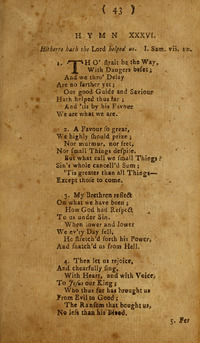 ( 43 )
HYMN XXXVI.
Hitherto hath the Lord helped us. I. Sam. vii. 12.
1. THO' strait be the Way,
With Dangers beset;
And we thro' Delay
Are no farther yet;
Our good Guide and Saviour
Hath helped thus far;
And 'tis by his Favour
We are what we are.
2. A Favour so great,
We highly should prize;
Nor murmur, nor fret,
Nor small Things despise.
But what call we small Things?
Sin's whole cancell'd Sum;
'Tis greater than all Things—
Except those to come.
3. My Brethren reflect
On what we have been;
How God had Respect
To us under Sin.
When lower and lower
We ev'ry Day fell,
He stretch'd forth his Power,
And snatch'd us from Hell.
4. Then let us rejoice,
And chearfully sing,
With Hearts, and with Voice,
To Jesus our King;
Who thus far has brought us
From Evil to Good;
The Ransom that bought us,
No less than his Blood.
5. For